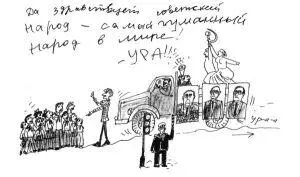 Да здравствует советский
народ – самый гуманный
народ в мире!
– УРА!!!
ура-а